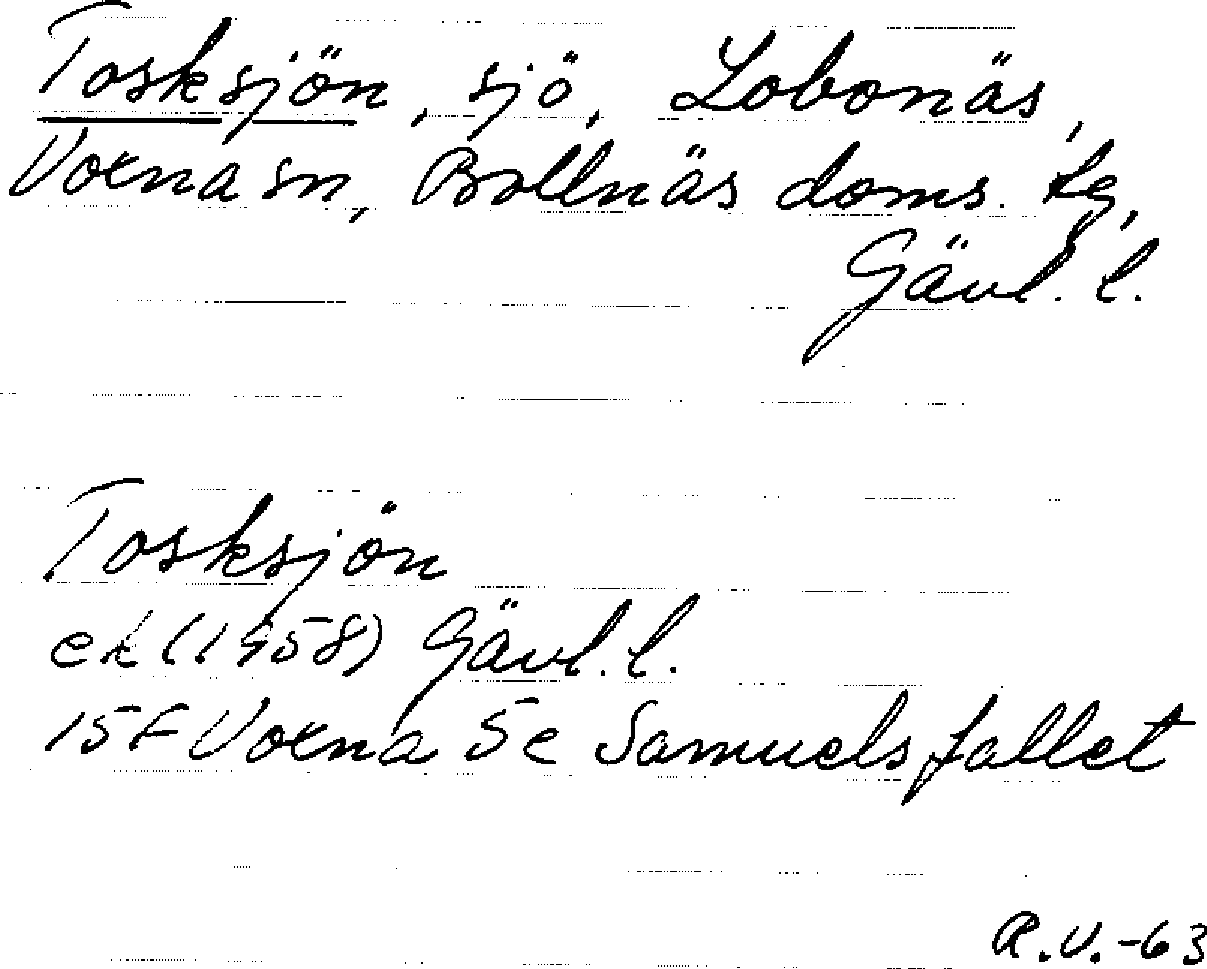 Tosksjön, sjö, Lobonäs,
Voxna sn, Bollnäs doms. tg,
Gävl. l.
Tosksjön
ek (1958) Gävl. l.
15F Voxna 5e Samuelsfallet
R.V.-63